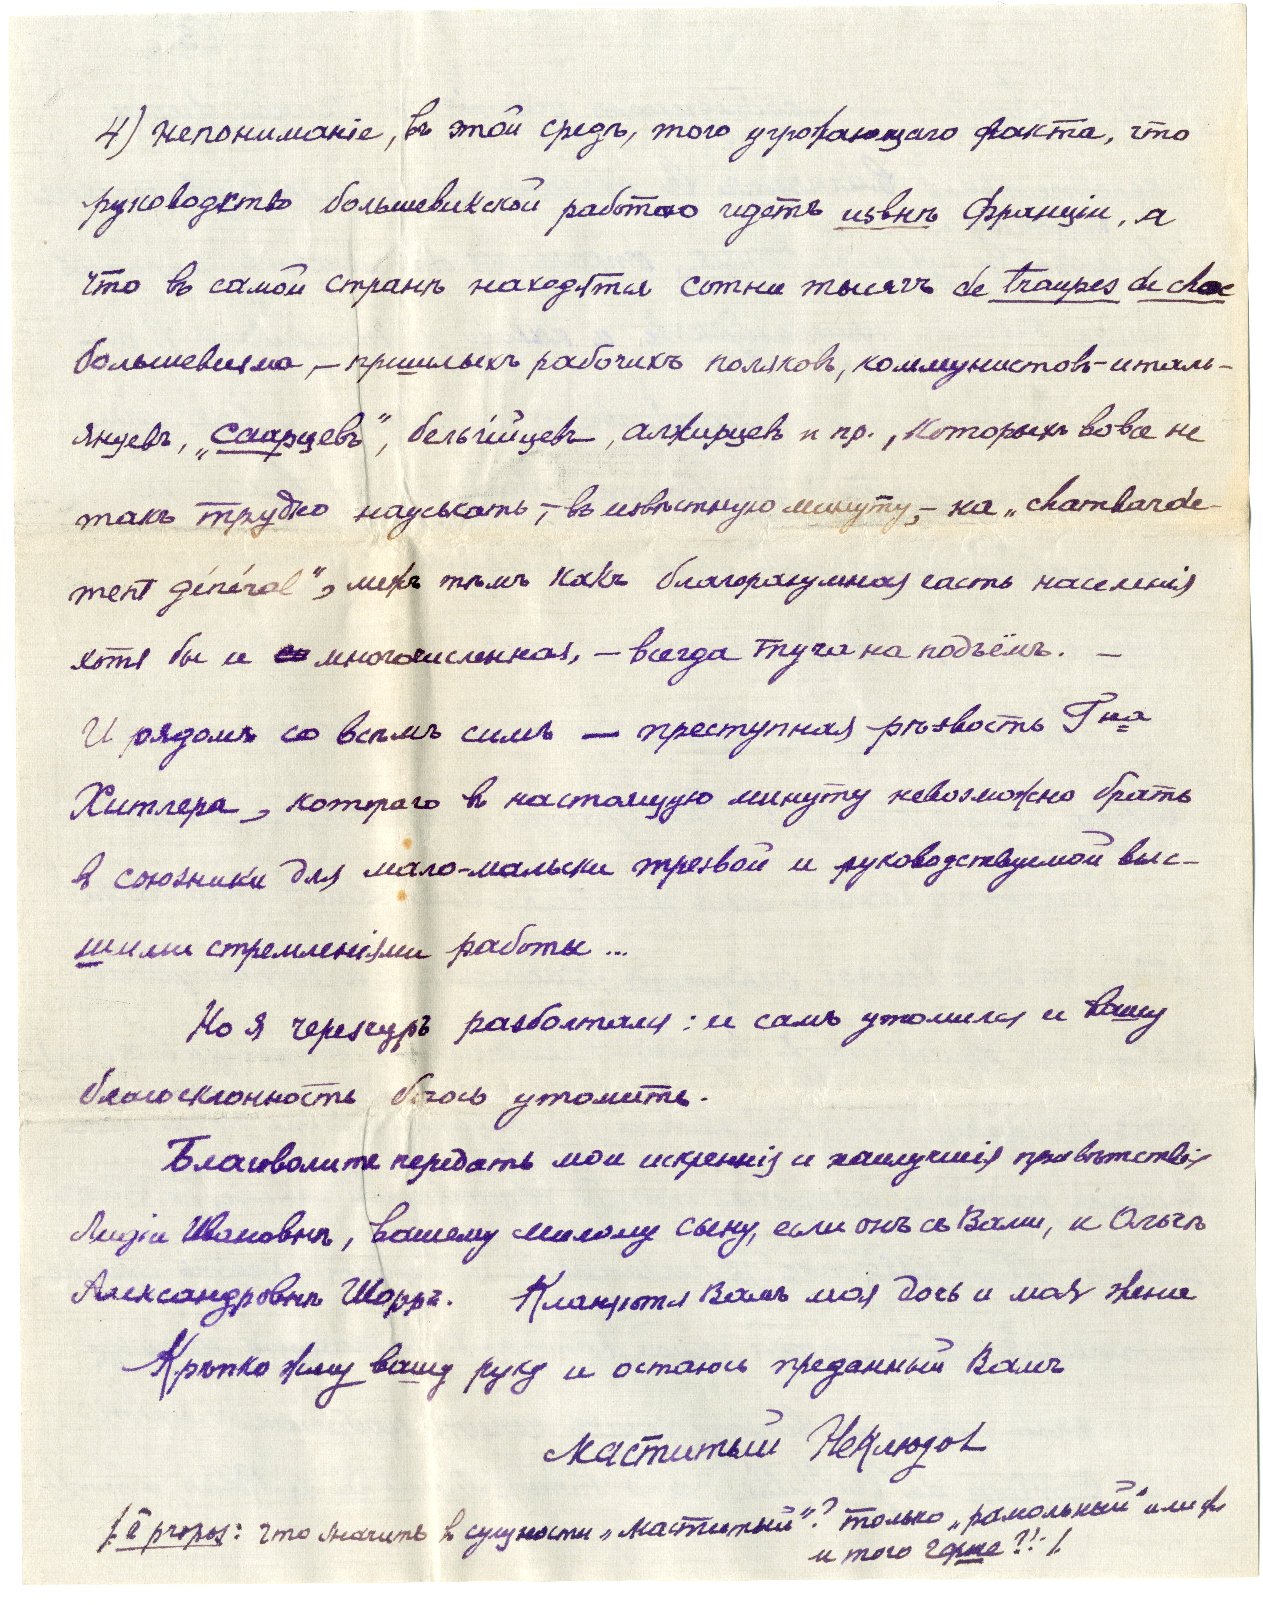 4) непониманіе, въ этой средѣ, того угрожающаго факта, что
руководство большевикской работою идетъ извнѣ Франціи, а
что въ самой странѣ находятся сотни тысячъ de troupes de choc
большевизма, – пришлыхъ рабочихъ поляковъ, коммунистовъ-италь-
янцевъ, „саарцевъ", бельгійцевъ, алжирцевъ и пр., которыхъ вовсе не
такъ трудно науськать, – въ извѣстную минуту, – на „chambarde-
ment général", межъ тѣмъ какъ благоразумная часть населенія
хотя бы и многочисленная, – всегда туга на подъёмъ. –
И рядомъ со всѣмъ симъ — преступная рѣзвость Гна
Хитлера, котораго в настоящую минуту невозможно брать
в союзники для мало-мальски трезвой и руководствуемой выс-
шими стремленіями работы ...
Но я черезчуръ разболтался: и самъ утомился и вашу
благосклонность боюсь утомить.
Благоволите передать мои искреннія и наилучшія привѣтствія
Лидіи Ивановнѣ, вашему милому сыну, если онъ съ Вами, и Ольгѣ
Александровнѣ Шорръ. Кланяются Вамъ моя дочь и моя жена
Крѣпко жму вашу руку и остаюсь преданный Вамъ
Маститый Неклюдов
/.à propos: что значитъ в сущности „маститый"? только „рамольный" или же
и того хуже ?!./.